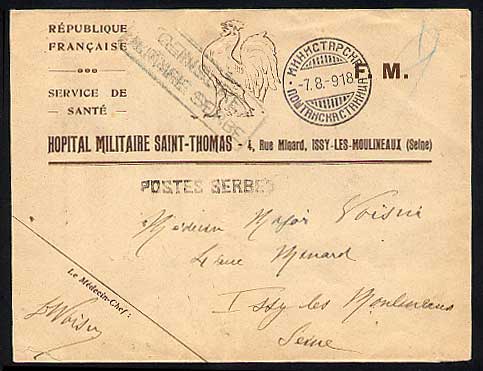 RÉPUBLIQUE
FRANÇAISE
SERVICE DE
SANTÉ
CENSURE
MILITAIRE SERBE
МИНИСТАРСКА
-7.8.918
ПОШТАНСКА СТАНИЦА
F. M.
HOPITAL MILITAIRE SAINT-THOMAS - 4, Rue Minard, ISSY-LES-MOULINEAUX (Seine)
POSTES SERBES
Médecin Major Voisin
4 rue Minard
Issy les Moulineaux
Seine
Le Médecin-Chef:
Voisin